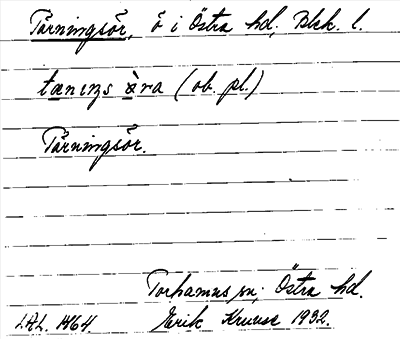 Tärningsör, ö i Östra hd; Blek. l.
tæniŋs öra (ob. pl.)
Tärningsör.
Torhamns sn; Östra hd.
Erik Kruuse 1932.